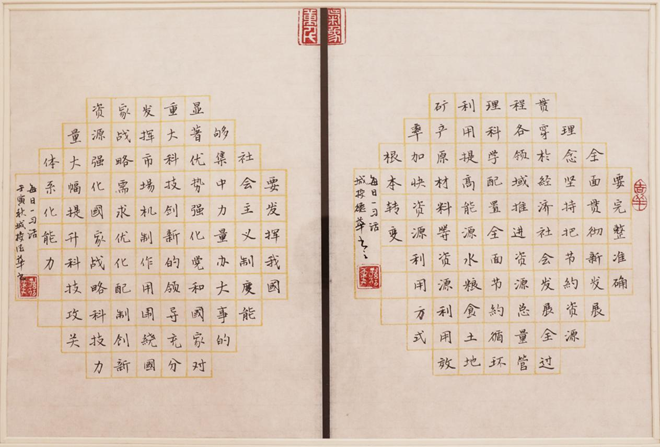 要完整准确
全面贯彻新发展
理念坚持把节约资源
贯穿於经济社会发展全过
程各领域推进资源总量管
理科学配置全面节约循环
利用提高能源水粮食土地
矿产原材料等资源利用效
率加快资源利用方式
根本转变
每日一习话
要发挥我國
社会主义制度能
够集中力量办大事的
显著优势强化党和國家对
重大科技创新的领导充分
发挥市场机制作用围绕國
家战略需求优化配制创新
资源强化國家战略科技力
量大幅提升科技攻关
体系化能力
每日一习话
壬寅秋